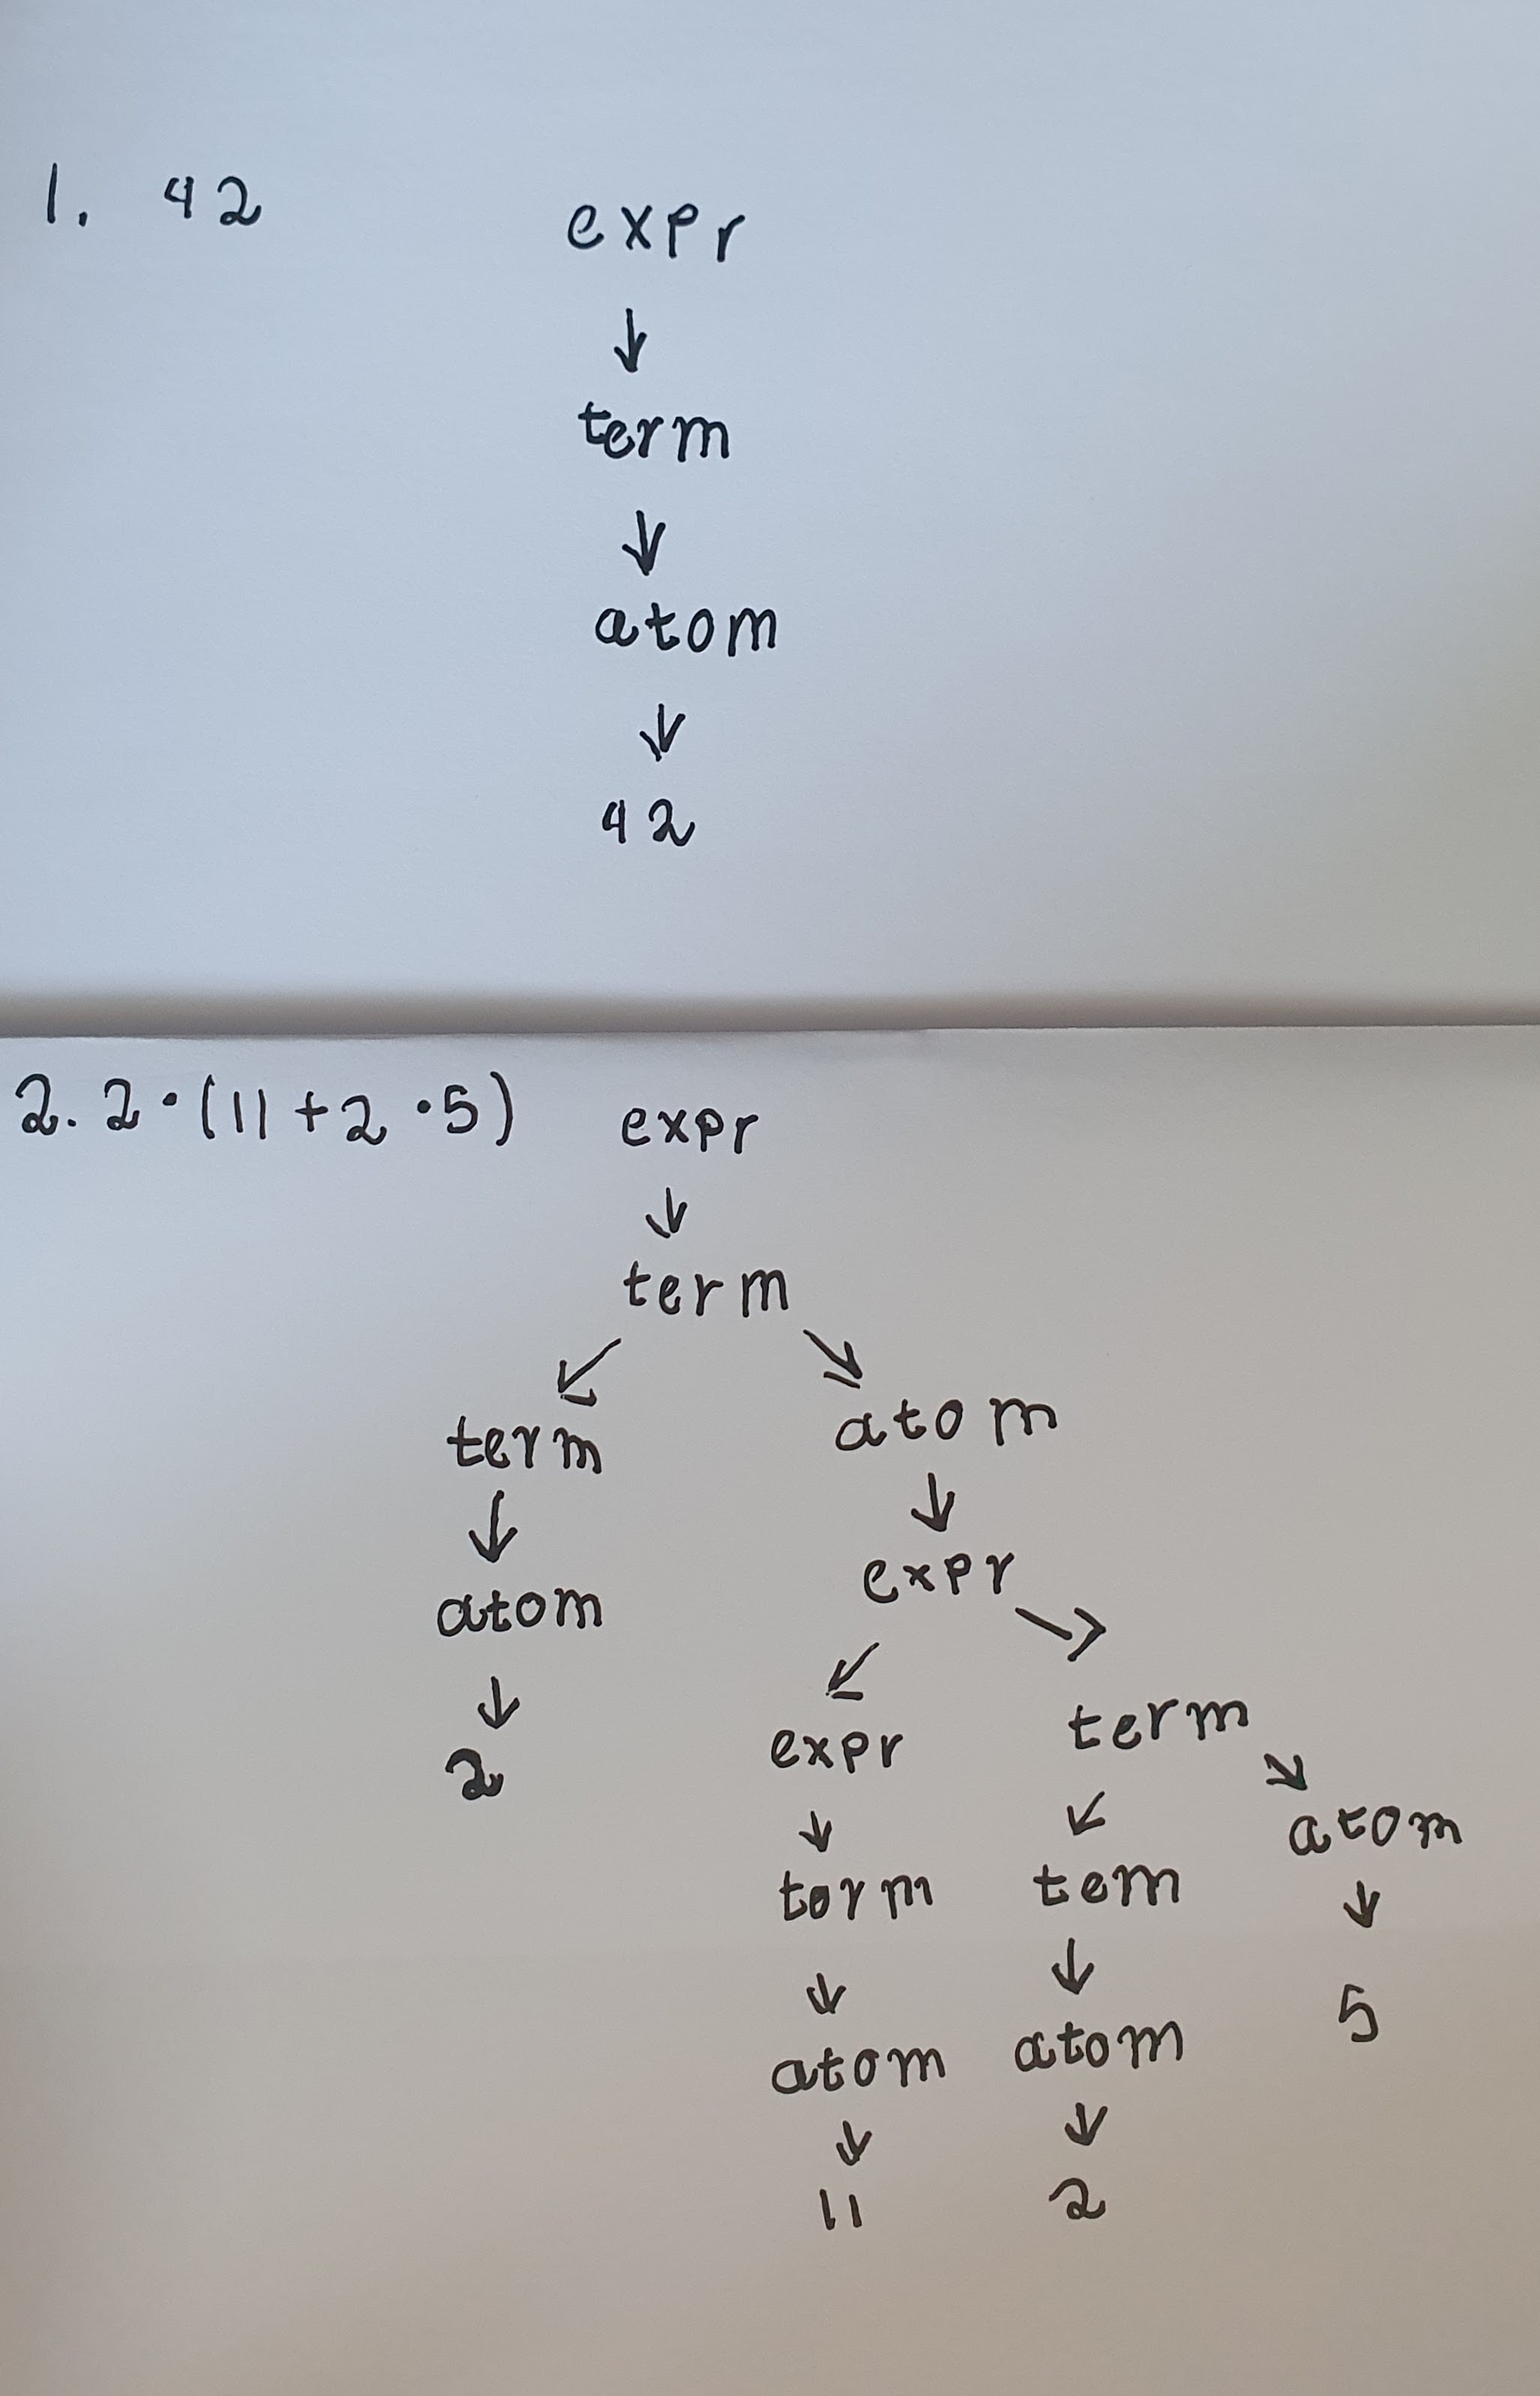 1. 42 expr
↓
term
↓
atom
↓
42
2. 2·(11+2·5) expr
↓
term
↙ ↘
term atom
↓ ↓
atom expr
↙ ↘
↓ expr term
2 ↓ ↙ ↘
term tem atom
↓ ↓ ↓
atom atom 5
↓ ↓
11 2